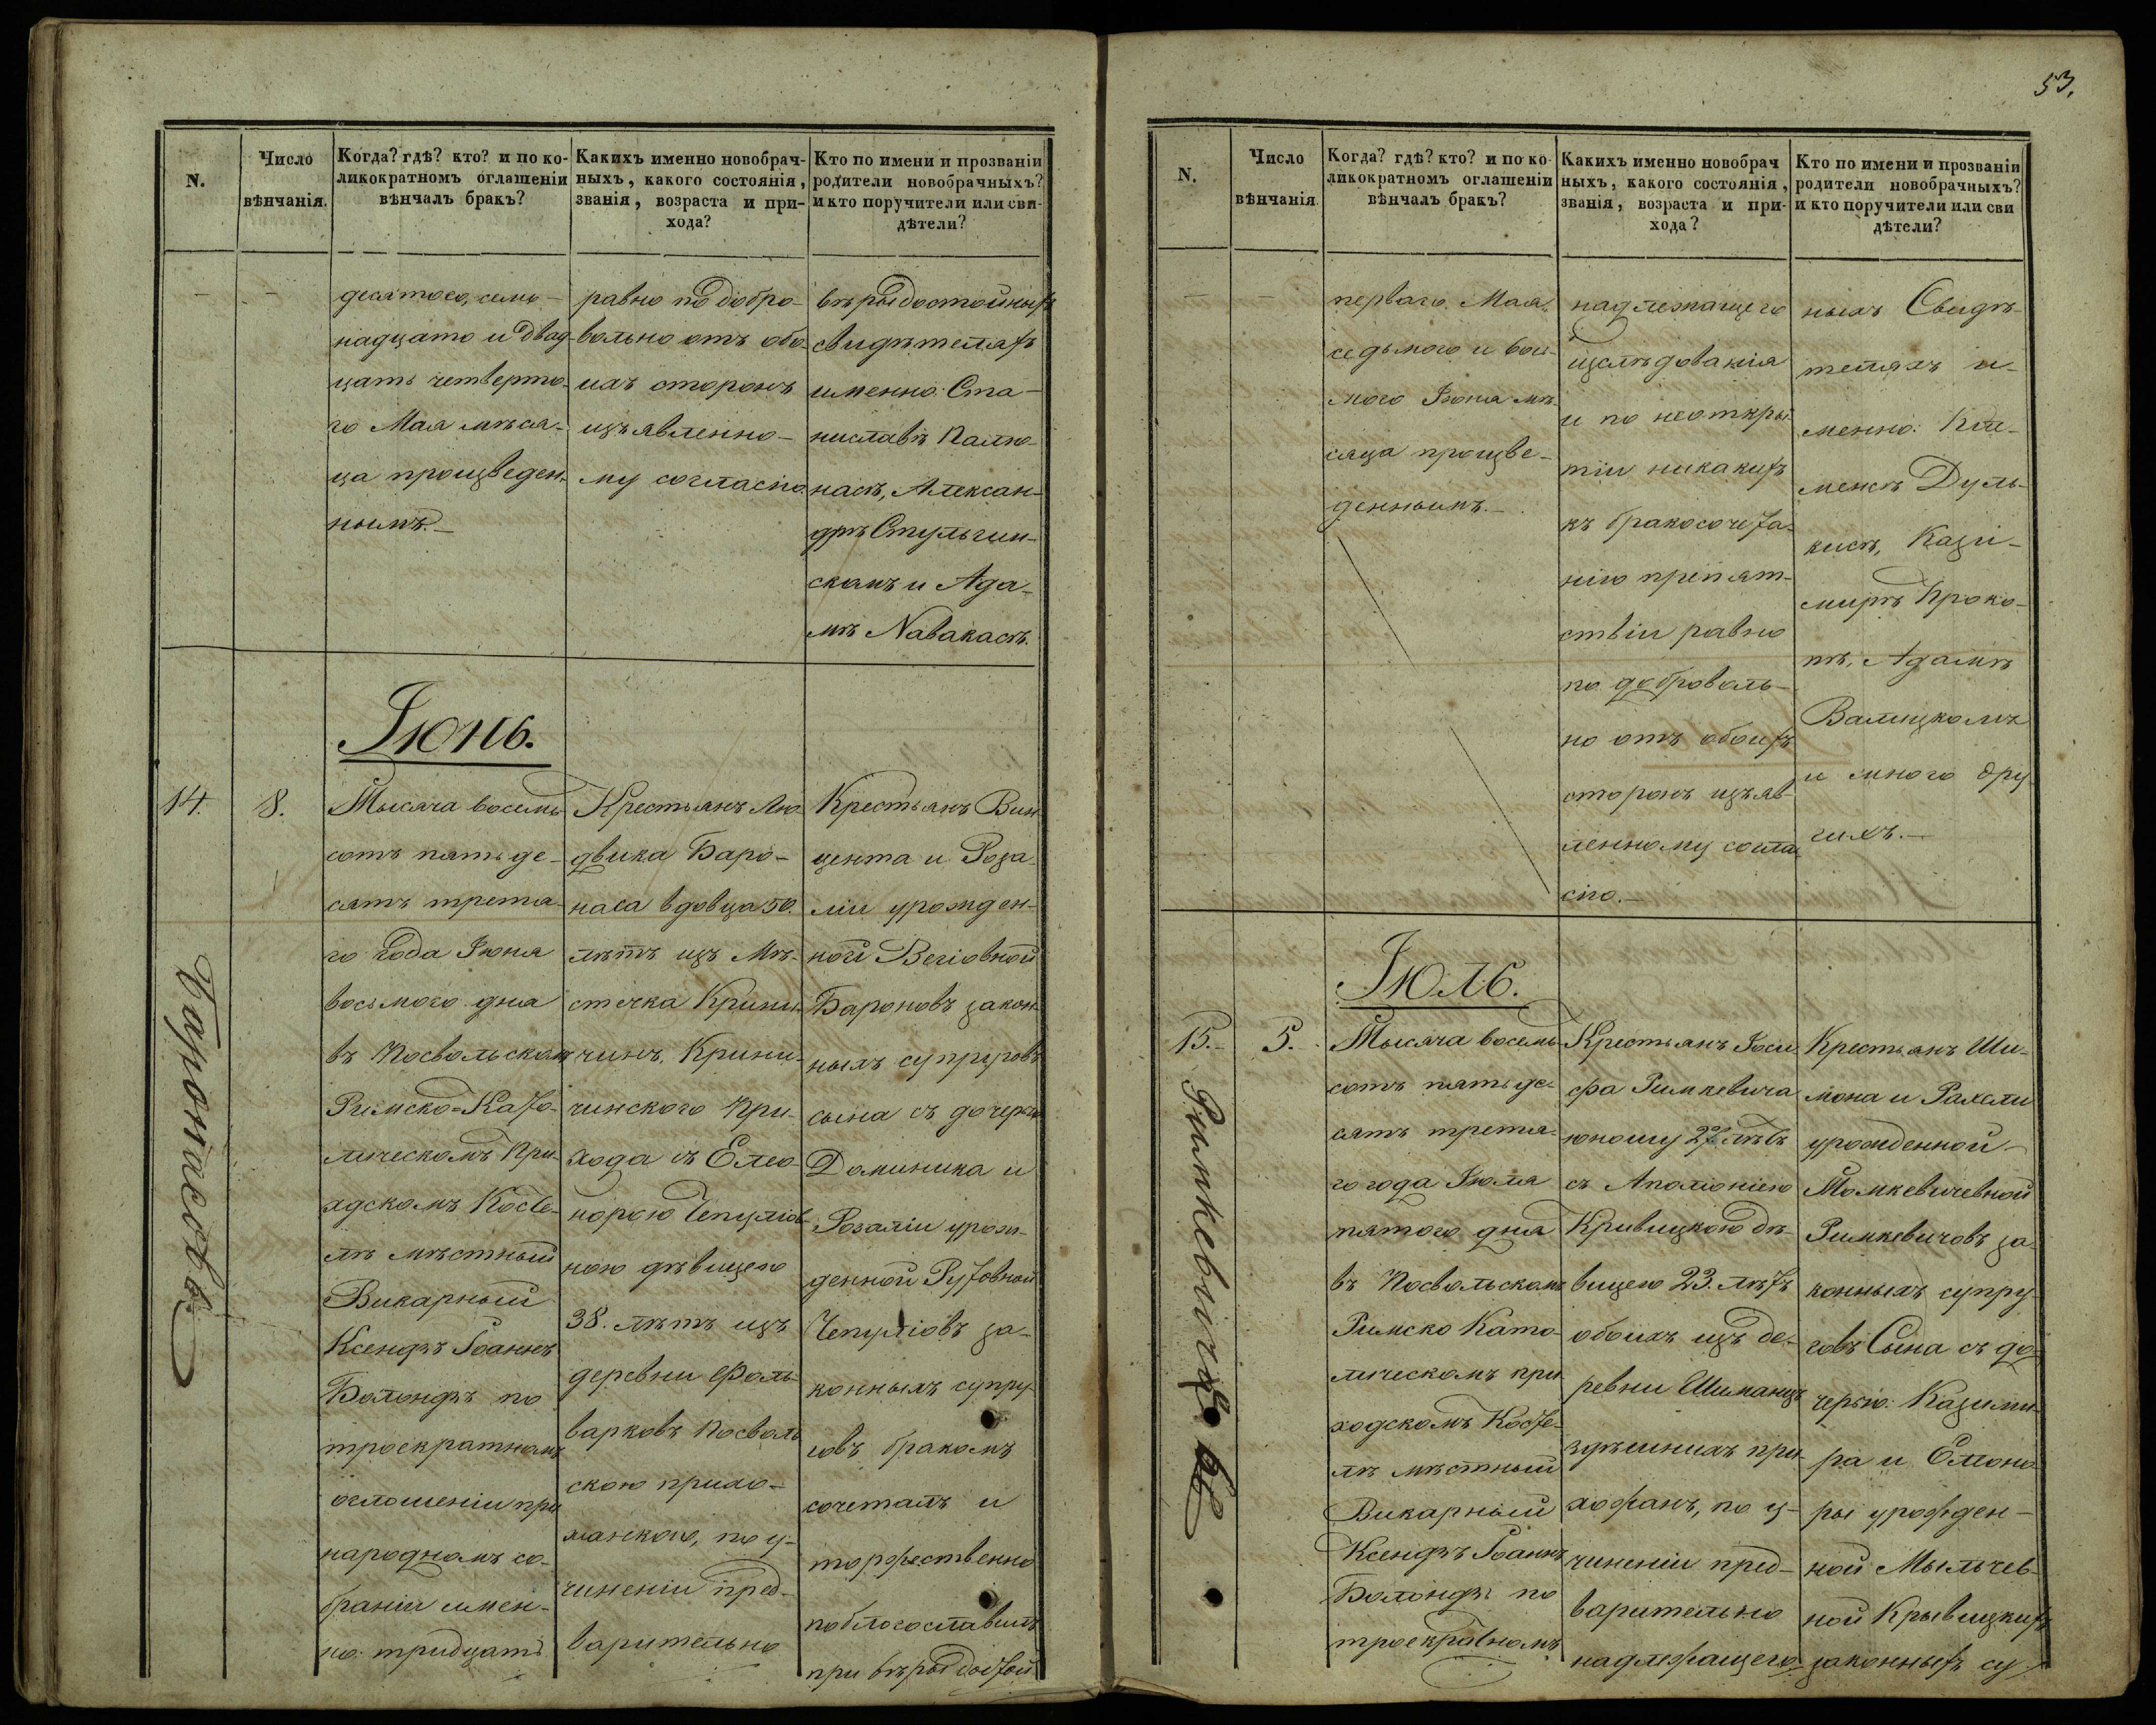 53.
N.
Число
вѣнчанія.
Когда? гдѣ? кто? и по ко-
ликократномъ оглашеніи
вѣнчалъ бракъ?
Какихъ именно новобрач-
ныхъ, какого состоянія,
званія, возраста и при-
хода?
Кто по имени и прозваніи
родители новобрачныхъ?
и кто поручители или сви-
дѣтели?
десятого, семь-
надцато и двад-
цать четверто-
го Мая мѣся-
ца произведен-
нымъ.
равно по добро-
вольно отъ обо-
ихъ сторонъ
изъявленно-
му согласію
вѣры достойныхъ
свидѣтеляхъ
именно: Ста-
ниславѣ Палю-
насѣ, Алексан-
дрѣ Стульгин-
скомъ и Ада-
мѣ Навакасѣ.
Іюнь.
14.
8.
Баронасовъ
Тысяча восемь
сотъ пятьде-
сятъ третья-
го года Іюня
восьмого дня
въ Посвольскомъ
Римско-Като-
лическомъ При-
ходскомъ Косте-
лѣ мѣстный
Викарный
Ксендзъ Іоаннъ
Болондзъ по
троекратномъ
оглошеніи при
народномъ со-
браніи имен-
но: тридцать
Крестьянъ Лю-
двика Баро-
наса вдовца 50.
лѣтъ изъ Мѣ-
стечка Кринич-
чинъ, Крини-
чинского При-
хода съ Елео-
норою Чепулiов-
ною дѣвицею
38. лѣтъ изъ
деревни Фоль-
варковъ Посволь
скою прихо-
жанкою, по у-
чиненіи пред-
варительно
Крестьянъ Вин-
цента и Роза-
ліи урожден-
ной Вегіовной
Бароновъ закон-
ныхъ супруговъ
сына съ дочерью
Доминика и
Розаліи урож-
денной Рутовной
Чепуліовъ за-
конныхъ супру-
говъ бракомъ
сочеталъ и
торжественно
поблогославилъ
при вѣры достой
N.
Число
вѣнчанія.
Когда? гдѣ? кто? и по ко-
ликократномъ оглашеніи
вѣнчалъ бракъ?
Какихъ именно новобрач
ныхъ, какого состоянія,
званія, возраста и при-
хода?
Кто по имени и прозваніи
родители новобрачныхъ?
и кто поручители или сви
дѣтели?
перваго Мая,
седьмого и вось-
мого Іюня мѣ-
сяца произве-
деннымъ.
надлежащего
изслѣдованія
и по неоткры-
тіи никакихъ
къ бракосочета-
нію препят-
ствіи равно
по доброволь-
но отъ обоихъ
сторонъ изъяв-
ленному согла-
сію.
ныхъ Свидѣ-
теляхъ и-
менно: Кли-
менсѣ Дуль-
кисѣ, Кази-
мирѣ Проко-
пѣ, Адамѣ
Валицкомъ
и много дру-
гихъ.
Іюль.
15.
5.
Римкевичовъ
Тысяча восемь
сотъ пятьде-
сятъ третья-
го года Іюля
пятого дня
въ Посвольскомъ
Римско Като-
лическомъ при
ходскомъ Косте-
лѣ мѣстный
Викарный
Ксендзъ Іоаннъ
Болондзъ по
троекратномъ
Крестьянъ Іоси-
фа Римкевича
юношу 27 лѣтъ
съ Аполоніею
Кривицкою дѣ-
вицею 23. лѣтъ
обоихъ изъ де-
ревни Шиманцъ
здѣшнихъ при-
хожанъ, по у-
чиненіи пред-
варительно
надлежащего
Крестьянъ Ши-
мона и Рахели
урожденной
Томкевичевной
Римкевичовъ за-
конныхъ супру-
говъ Сына съ до-
черью: Казими-
ра и Елоно-
ры урожден-
ной Мыльчев-
ной Крывицкихъ
законныхъ су-